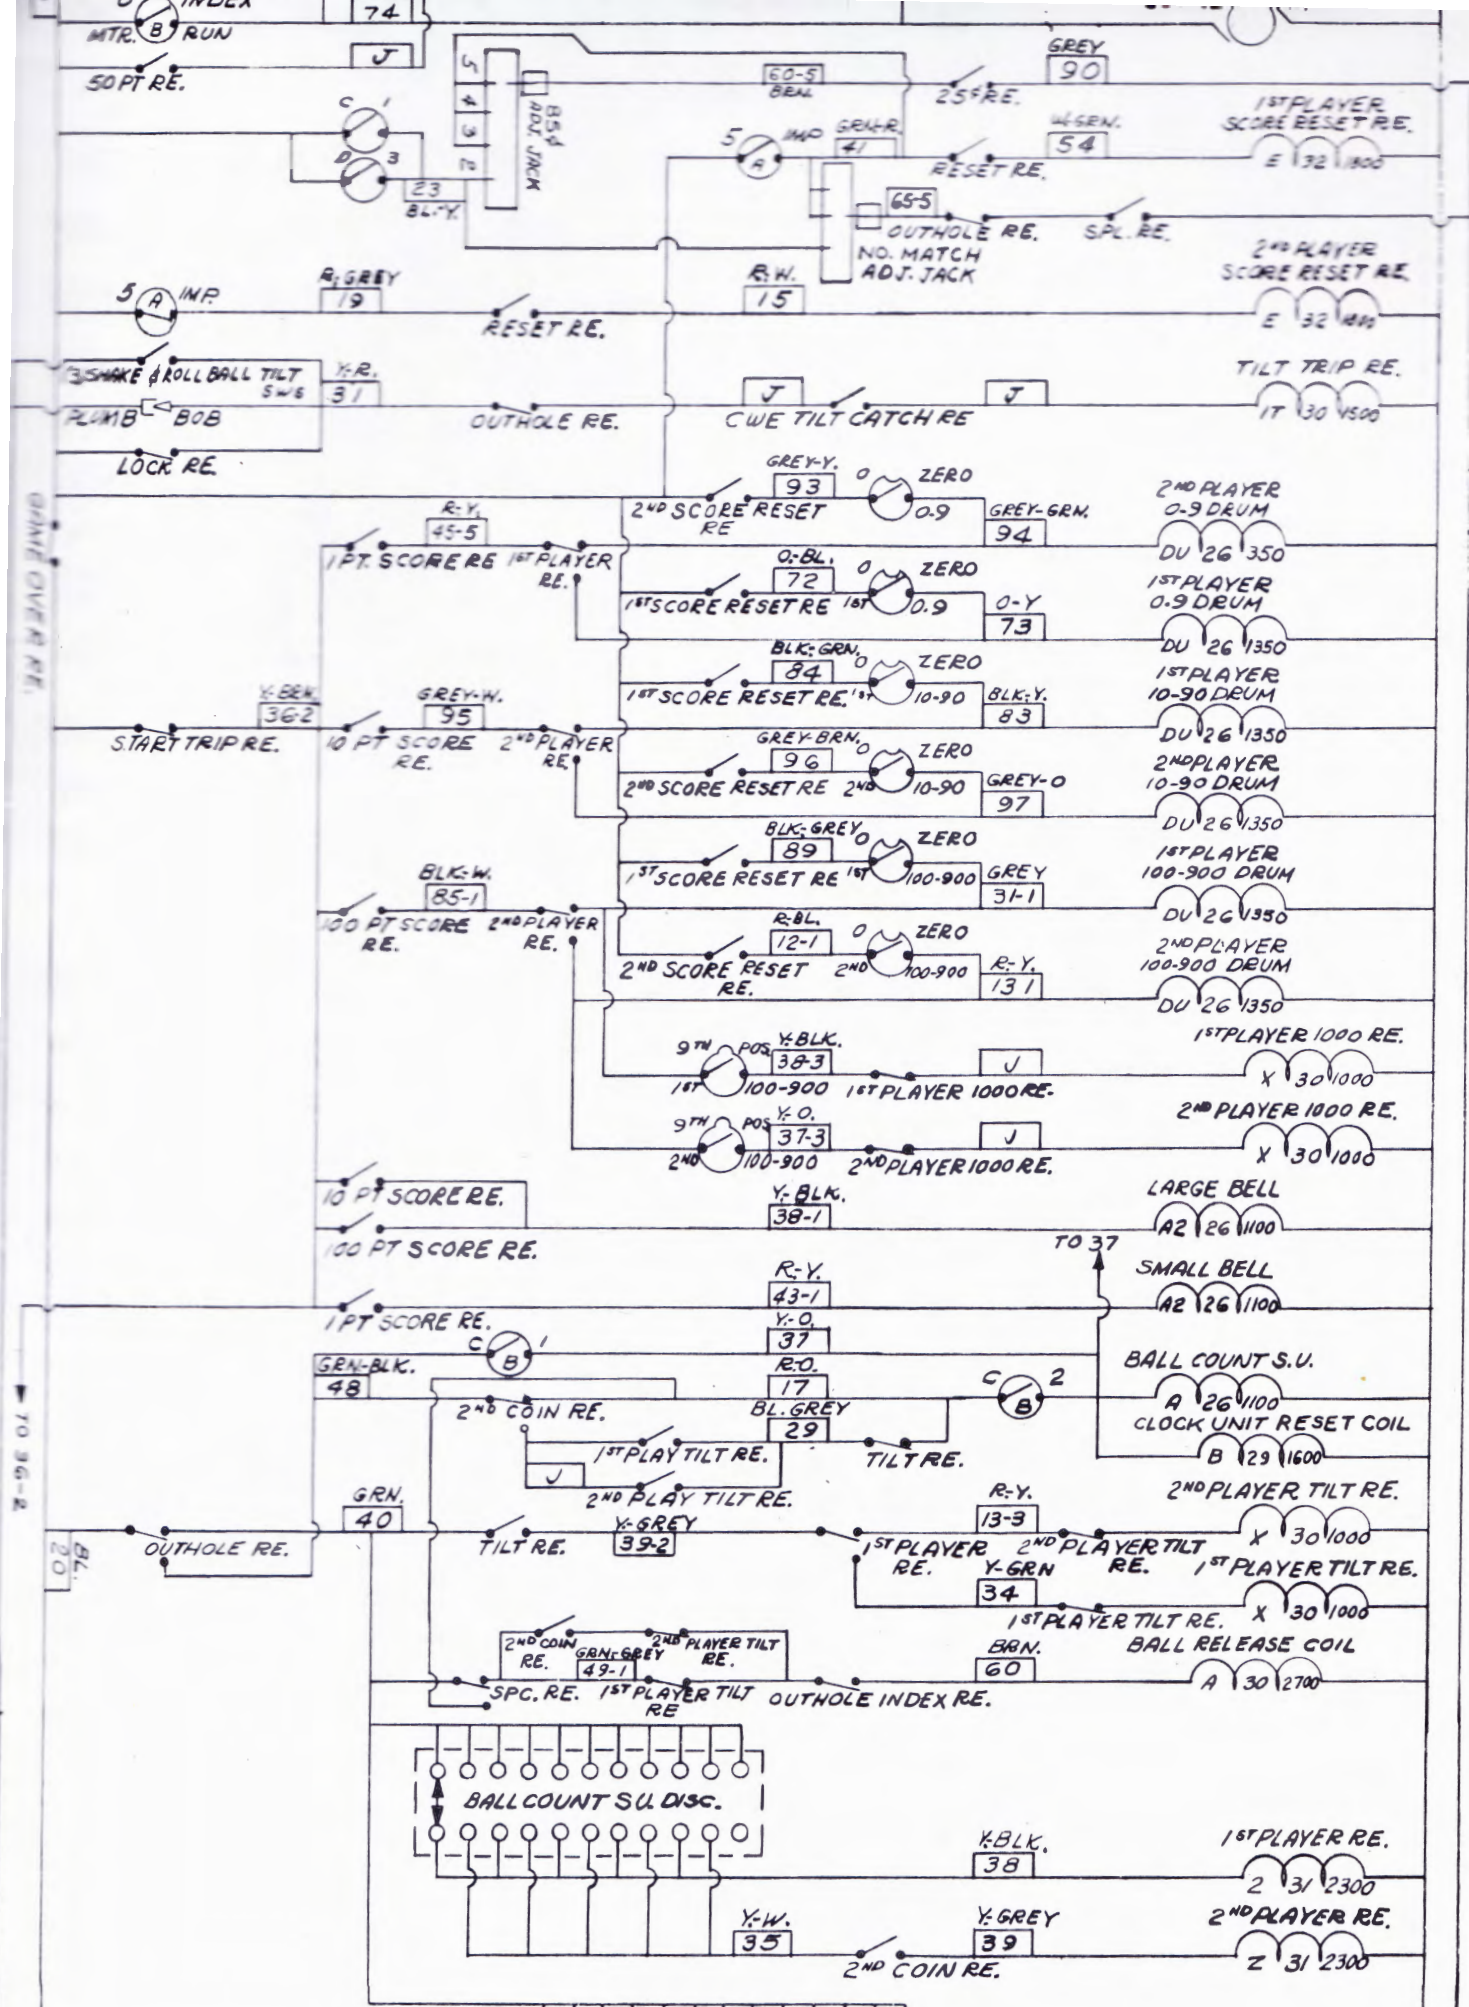 INDEX
MTR. B RUN
74
J
50 PT RE.
5
4
3
2
85¢
ADJ. JACK
60-5
BRN.
25¢ RE.
GREY
90
C 1
D 3
23
BL.-Y.
5 IMP
A
GRN-R.
41
RESET RE.
W-GRN.
54
1ST PLAYER
SCORE RESET RE.
E 32 1800
65-5
OUTHOLE RE.
SPL. RE.
NO. MATCH
ADJ. JACK
2ND PLAYER
SCORE RESET RE.
E 32 1800
5 A IMP.
R.-GREY
19
RESET RE.
R.W.
15
(3) SHAKE & ROLL BALL TILT
SWS
Y-R.
31
PLUMB BOB
LOCK RE.
OUTHOLE RE.
J
CWE TILT CATCH RE
J
TILT TRIP RE.
1T 30 1500
GAME OVER RE.
GREY-Y.
93
0 ZERO
2ND SCORE RESET
RE
0.9
GREY-GRN.
94
2ND PLAYER
0.9 DRUM
DU 26 350
R-Y.
45-5
1 PT. SCORE RE
1ST PLAYER
RE.
O.-BL.
72
0 ZERO
1ST SCORE RESET RE
1ST
0.9
O-Y
73
1ST PLAYER
0.9 DRUM
DU 26 1350
BLK-GRN.
84
0 ZERO
1ST SCORE RESET RE.
1ST
10-90
BLK-Y.
83
1ST PLAYER
10-90 DRUM
DU 26 1350
Y-BRN.
36-2
START TRIP RE.
GREY-W.
95
10 PT SCORE
RE.
2ND PLAYER
RE
GREY-BRN.
96
0 ZERO
2ND SCORE RESET RE
2ND
10-90
GREY-O
97
2ND PLAYER
10-90 DRUM
DU 26 1350
BLK-GREY
89
0 ZERO
1ST SCORE RESET RE
1ST
100-900
GREY
31-1
1ST PLAYER
100-900 DRUM
DU 26 1350
BLK-W.
85-1
100 PT SCORE
RE.
2ND PLAYER
RE.
R-BL.
12-1
0 ZERO
2ND SCORE RESET
RE.
2ND
100-900
R-Y.
131
2ND PLAYER
100-900 DRUM
DU 26 1350
9TH POS.
1ST
100-900
Y-BLK.
38-3
1ST PLAYER 1000 RE.
J
1ST PLAYER 1000 RE.
X 30 1000
9TH POS
2ND
100-900
Y-O.
37-3
2ND PLAYER 1000 RE.
J
2ND PLAYER 1000 RE.
X 30 1000
10 PT SCORE RE.
100 PT SCORE RE.
Y-BLK.
38-1
LARGE BELL
A2 26 1100
TO 37
1 PT SCORE RE.
R-Y.
43-1
SMALL BELL
A2 26 1100
C B 1
Y-O.
37
GRN-BLK.
48
2ND COIN RE.
R.O.
17
C B 2
BALL COUNT S.U.
A 26 1100
1ST PLAY TILT RE.
BL. GREY
29
TILT RE.
CLOCK UNIT RESET COIL
B 29 1600
J
2ND PLAY TILT RE.
TO 36-2
BL.
20
OUTHOLE RE.
GRN.
40
TILT RE.
Y-GREY
39-2
1ST PLAYER
RE.
R-Y.
13-3
2ND PLAYER TILT
RE.
2ND PLAYER TILT RE.
X 30 1000
Y-GRN
34
1ST PLAYER TILT RE.
1ST PLAYER TILT RE.
X 30 1000
2ND COIN
RE.
2ND PLAYER TILT
RE.
GRN-GREY
49-1
SPC. RE.
1ST PLAYER TILT
RE
OUTHOLE INDEX RE.
BRN.
60
BALL RELEASE COIL
A 30 2700
BALL COUNT S.U. DISC.
Y-BLK.
38
1ST PLAYER RE.
Z 31 2300
Y-W.
35
2ND COIN RE.
Y-GREY
39
2ND PLAYER RE.
Z 31 2300